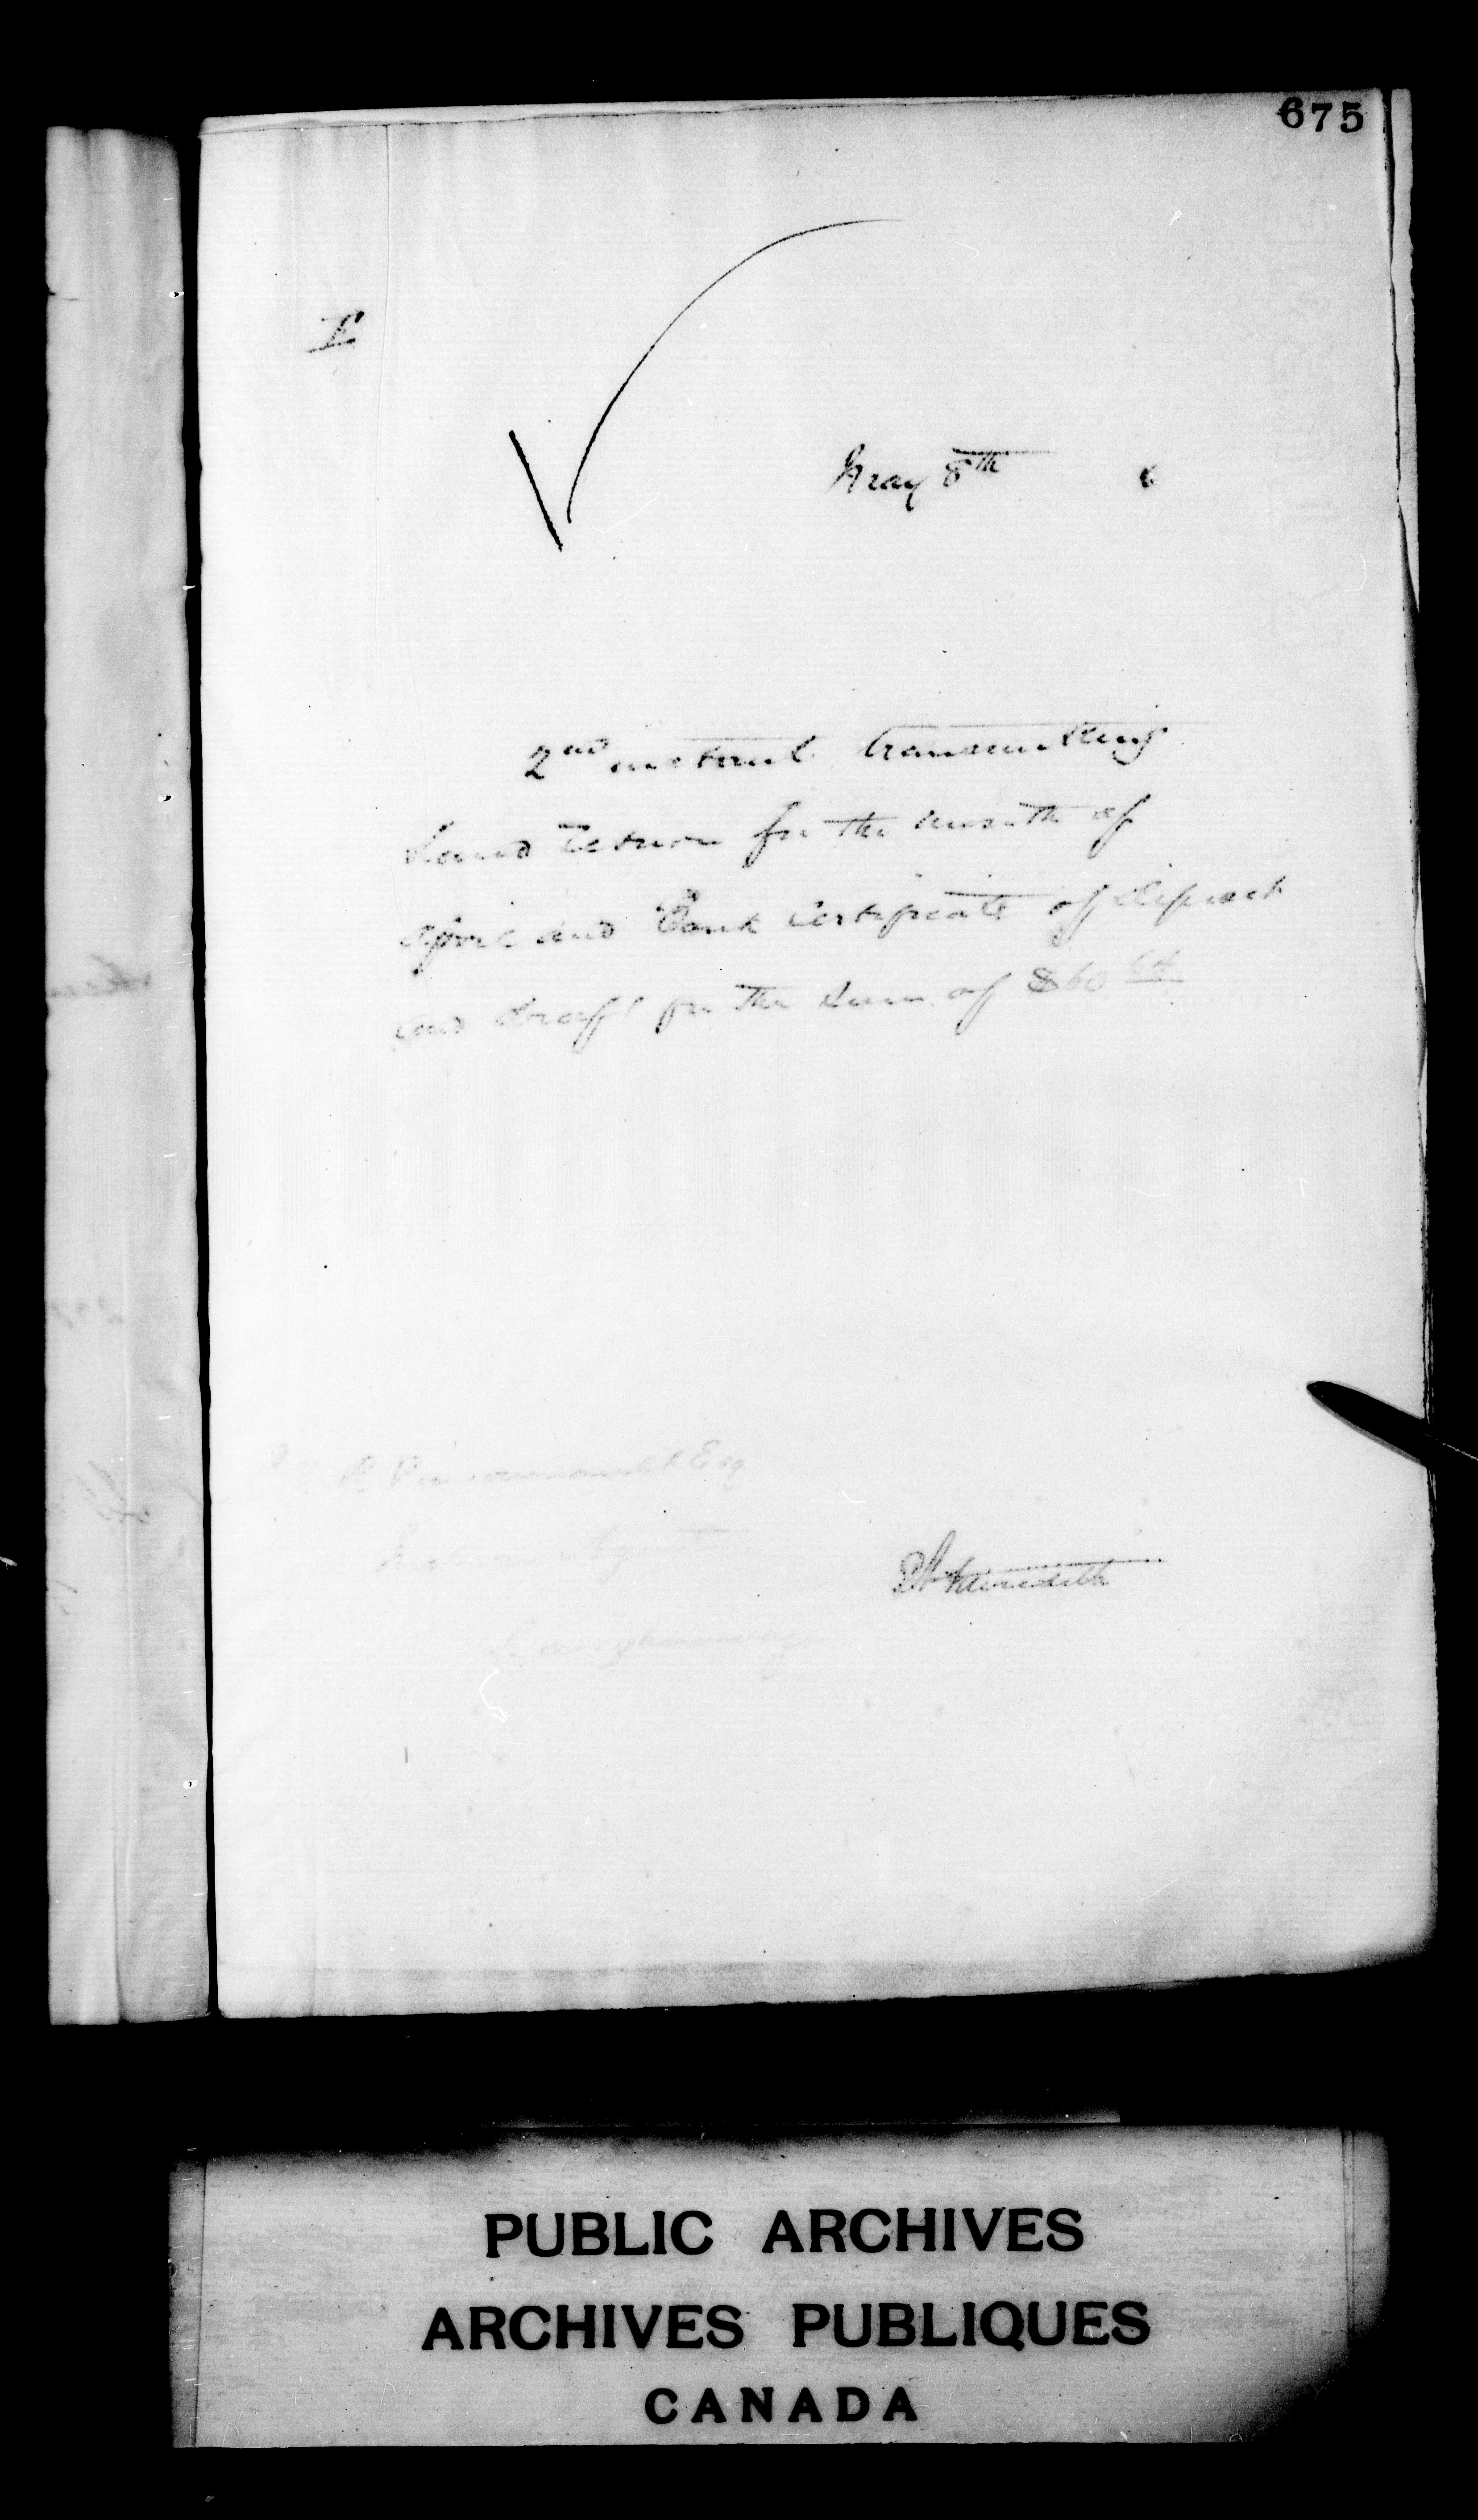 675
L
May 8th 6
2nd instant transmitting
Land Return for the month of
April and Bank Certificate of Deposit
and draft for the sum of $60 64
Esq
Agent
E A Meredith
PUBLIC ARCHIVES
ARCHIVES PUBLIQUES
CANADA